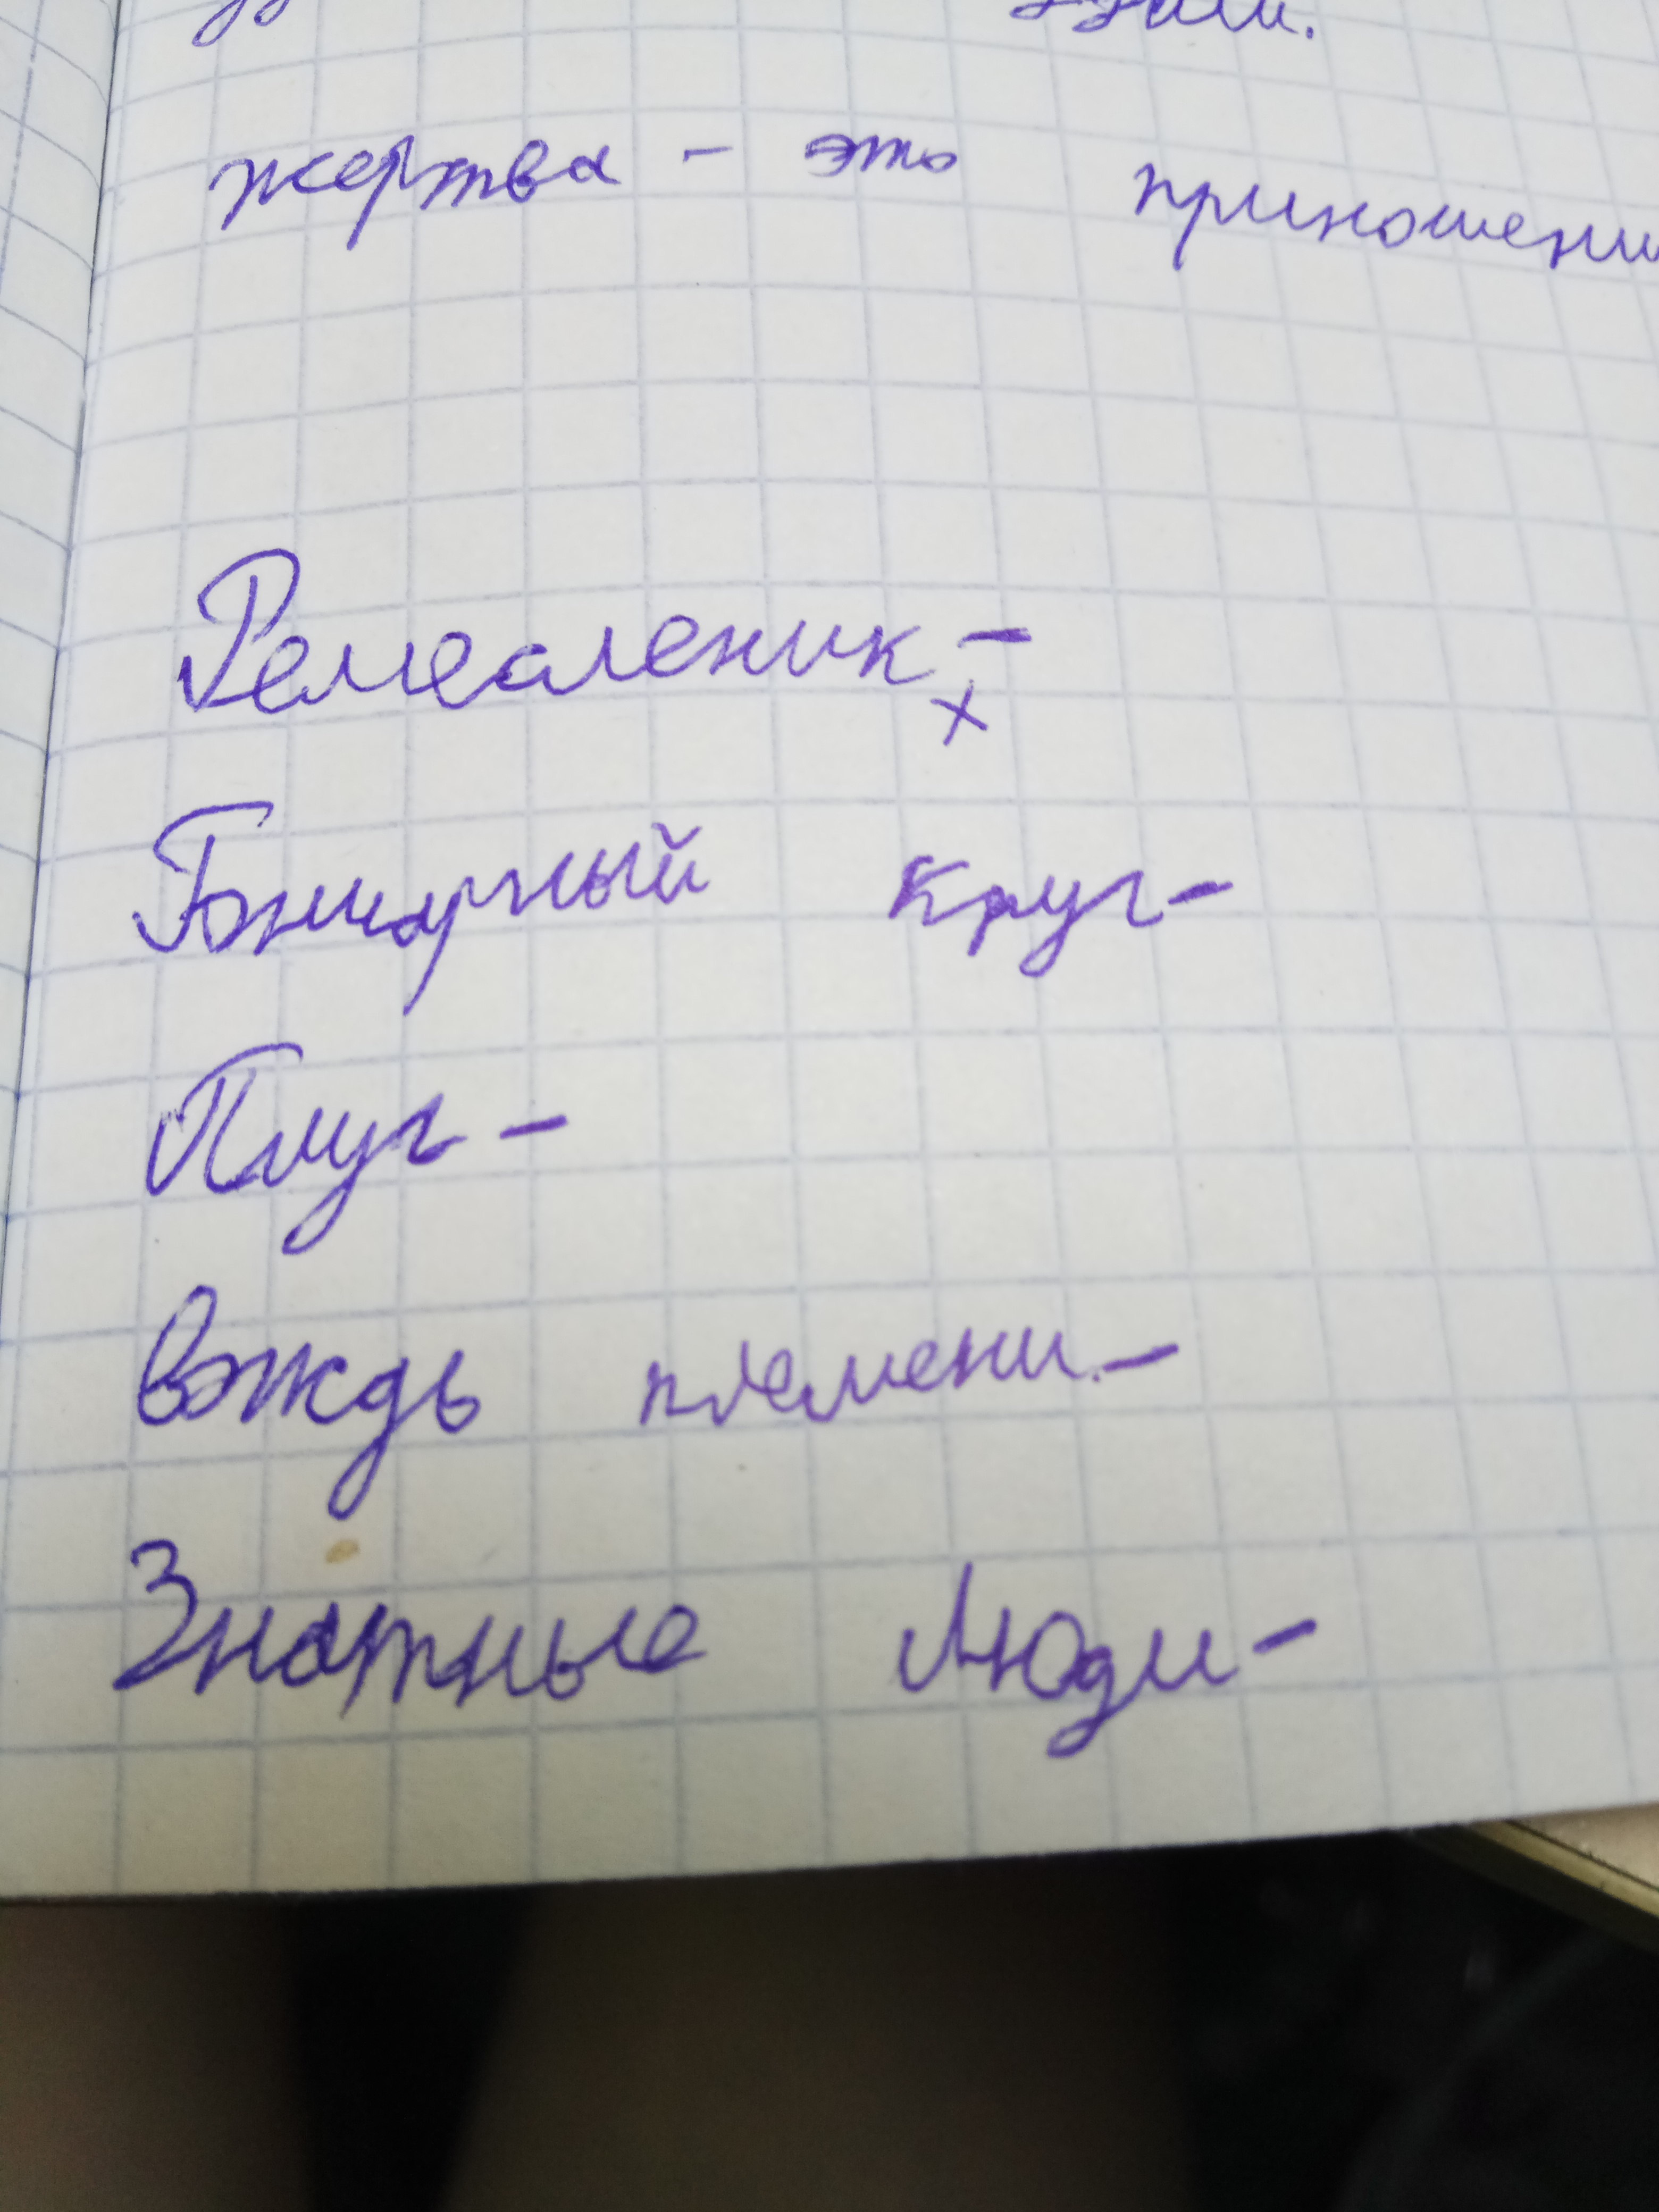 жертва - это приношени
Ремесленик -
х
Гончарный круг-
Плуг -
вождь племени.-
Знатные люди-